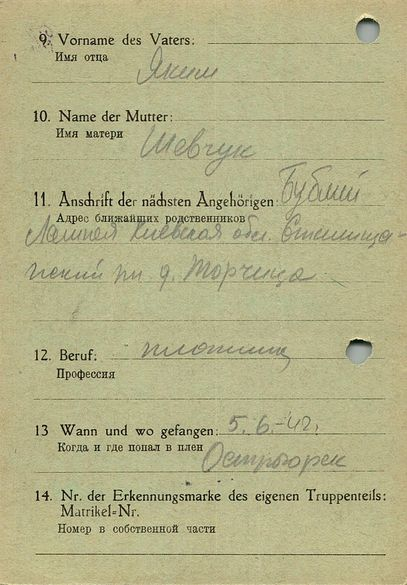 9. Vorname des Vaters:
Имя отца
Яким
10. Name der Mutter:
Имя матери
Шевчук
11. Anschrift der nächsten Angehörigen:
Адрес ближайших родственников
Киевская обл.
д. Торчица
12. Beruf: плотник
Профессия
13 Wann und wo gefangen: 5.6.-42г.
Когда и где попал в плен
Острогорск
14. Nr. der Erkennungsmarke des eigenen Truppenteils:
Matrikel=Nr.
Номер в собственной части